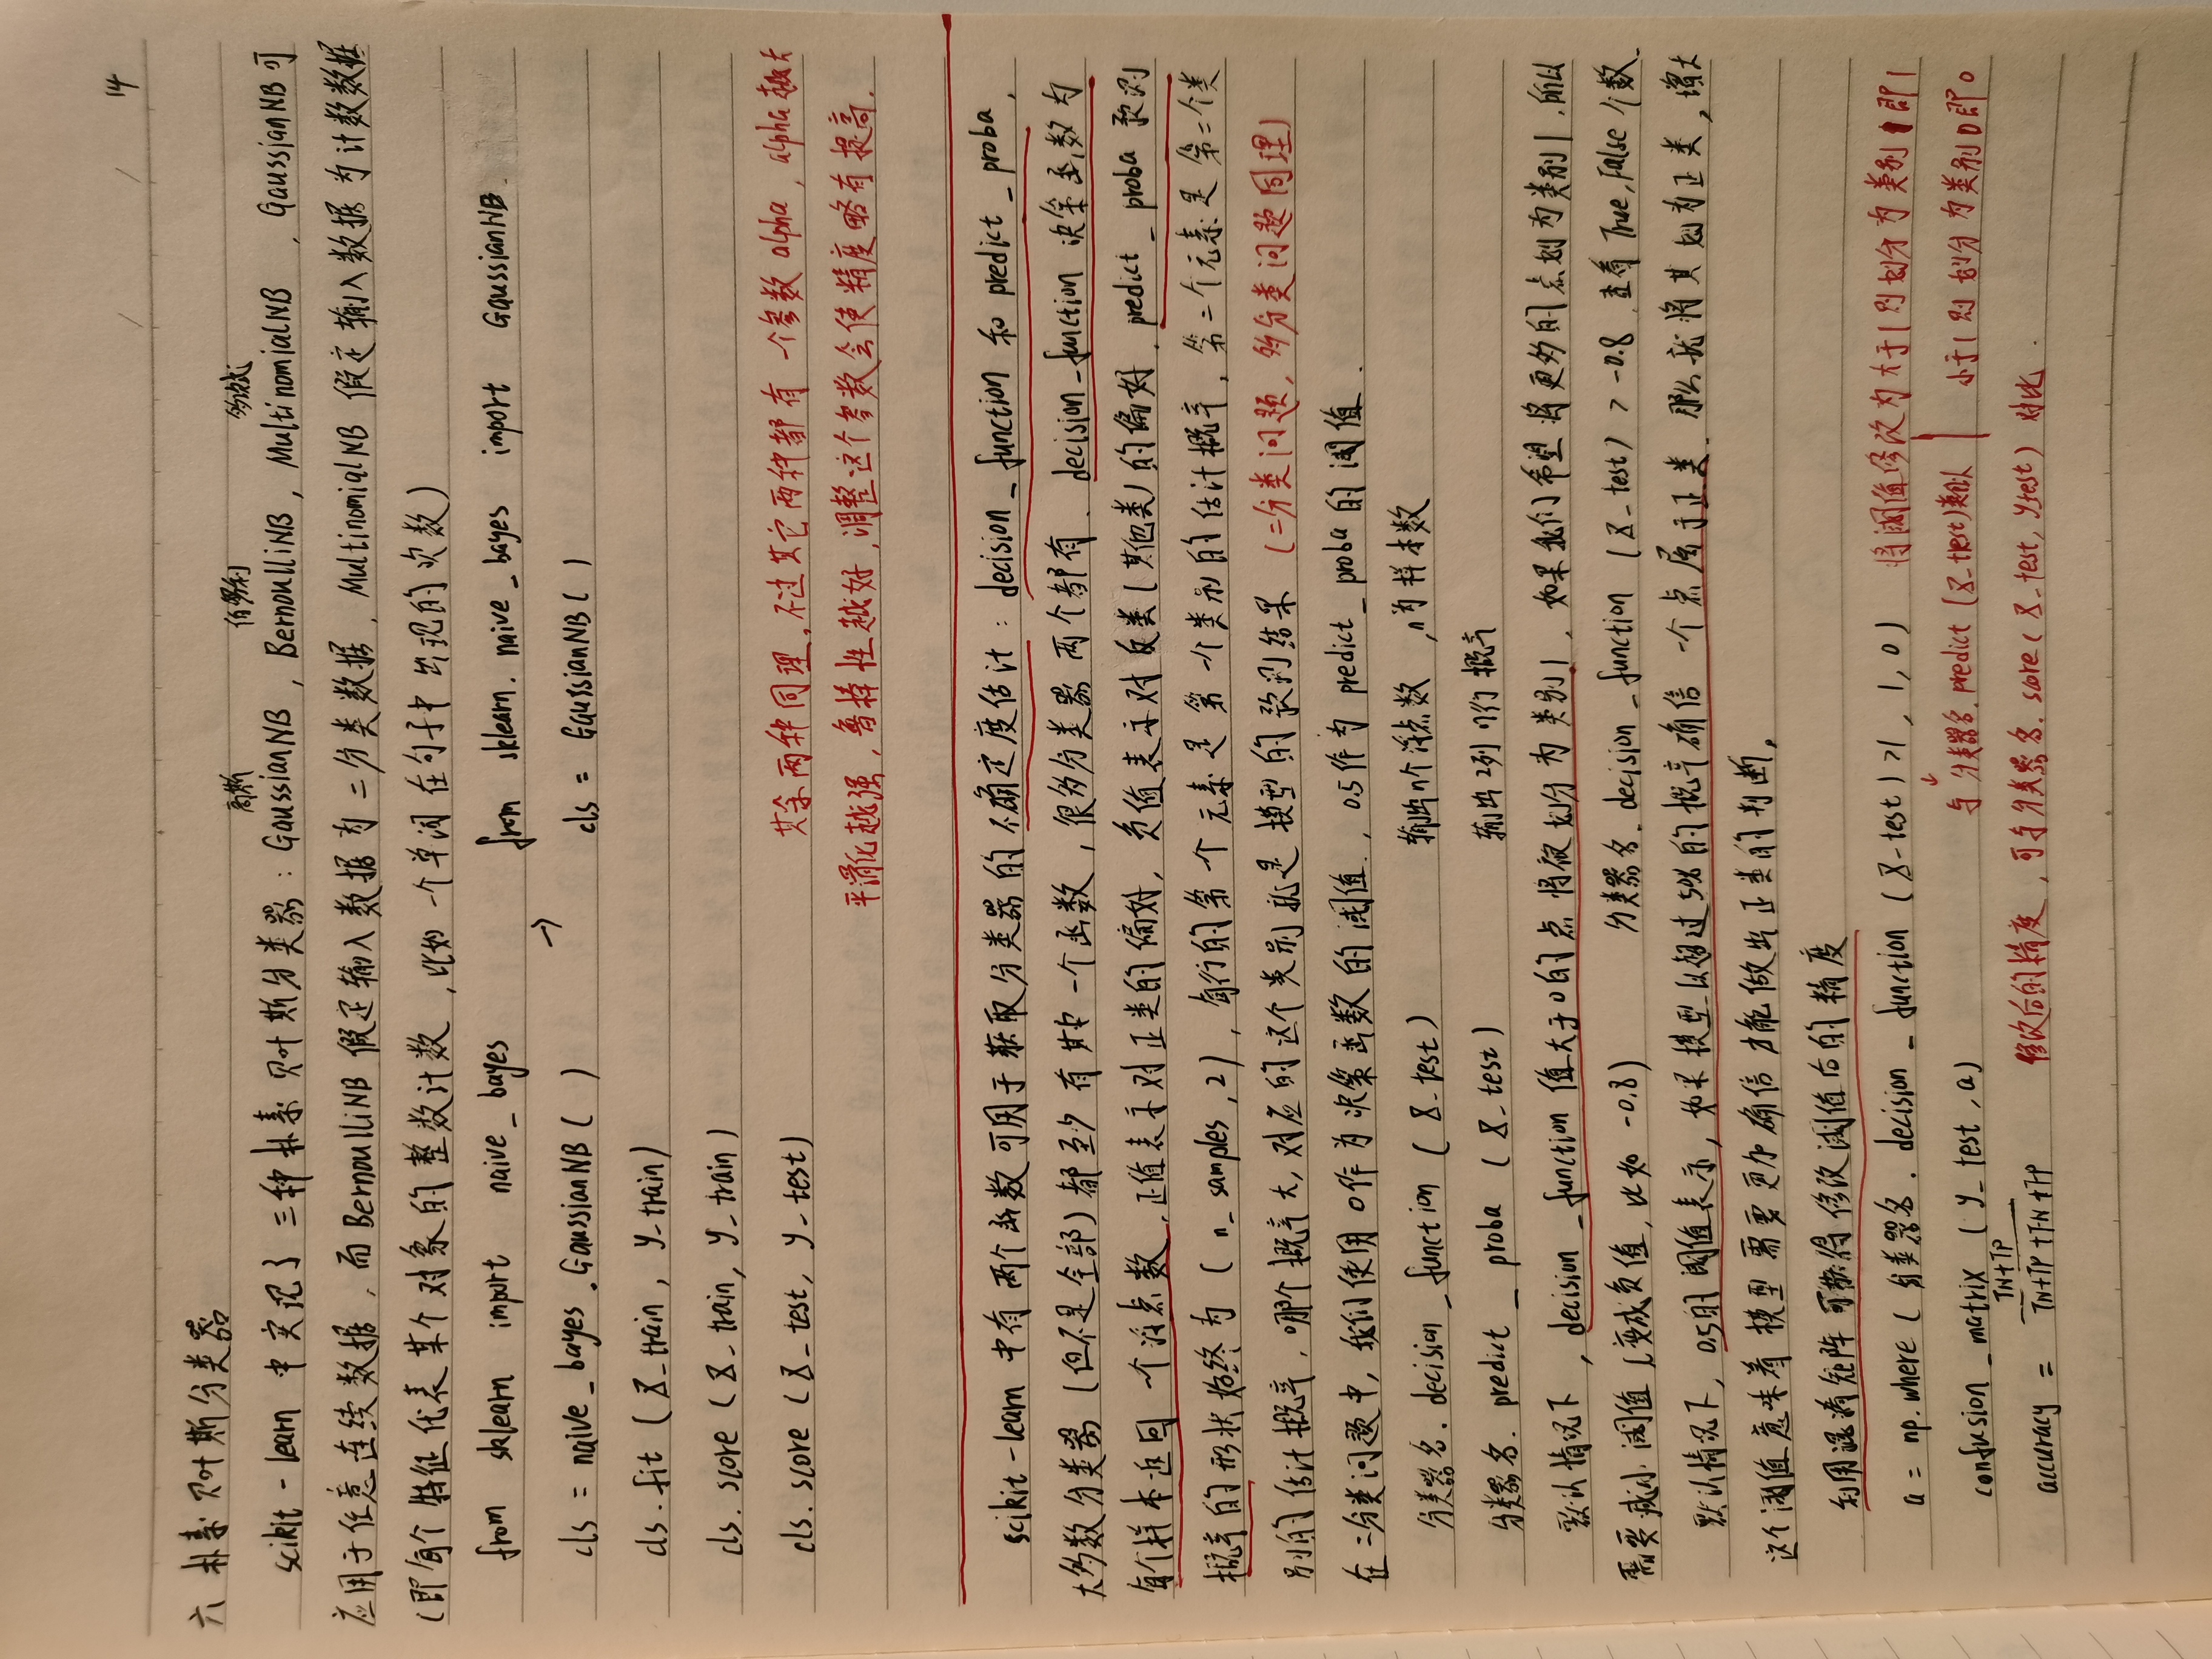 14
六 朴素贝叶斯分类器
高斯 伯努利 多项式
scikit-learn 中实现了三种朴素贝叶斯分类器：GaussianNB，BernoulliNB，MultinomialNB，GaussianNB可
应用于任意连续数据，而BernoulliNB假定输入数据为二分类数据，MultinomialNB假定输入数据为计数数据
（即每个特征代表某个对象的整数计数，比如一个单词在句子中出现的次数）
from sklearn import naive_bayes → from sklearn.naive_bayes import GaussianNB.
cls = naive_bayes.GaussianNB() cls = GaussianNB()
cls.fit(X_train, y_train)
cls.score(X_train, y_train) 其余两种同理，不过其它两种都有一个参数alpha，alpha越大
cls.score(X_test, y_test) 平滑化越强，鲁棒性越好，调整这个参数会使精度略有提高.
scikit-learn 中有两个函数可用于获取分类器的不确定度估计：decision_function 和 predict_proba，
大多数分类器（但不是全部）都至少有其中一个函数，很多分类器两个都有. decision_function 决策函数为
每个样本返回一个浮点数，正值表示对正类的偏好，负值表示对反类（其他类）的偏好. predict_proba 预测
概率的形状始终为（n_samples, 2），每行的第一个元素是第一个类别的估计概率，第二个元素是第二个类
别的估计概率，哪个概率大，对应的这个类别就是模型的预测结果 （二分类问题，多分类问题同理）
在二分类问题中，我们使用0作为决策函数的阈值，0.5作为 predict_proba 的阈值.
分类器名.decision_function(X_test) 输出n个浮点数，n为样本数
分类器名.predict_proba(X_test) 输出2列n行概率
默认情况下，decision_function 值大于0的点将被划分为类别1，如果我们希望将更多的点划为类别1，所以
需要减小阈值（变成负值，比如-0.8） 分类器名.decision_function(X_test) > -0.8 查看True,False个数.
默认情况下，0.5的阈值表示，如果模型以超过50%的概率确信一个点属于正类，那么就将其划为正类，增大
这个阈值意味着模型需要更加确信才能做出正类的判断，
利用混淆矩阵可获得修改阈值后的精度
a = np.where(分类器名.decision_function(X_test)>1, 1, 0) 将阈值修改为大于1则划分为类别1即1
confusion_matrix(y_test, a) 与分类器名.predict(X_test)类似 小于1则划分为类别0即0
accuracy = TN+TP / TN+TP+FN+FP 修改后的精度，可与分类器名.score(X_test, y_test)对比.